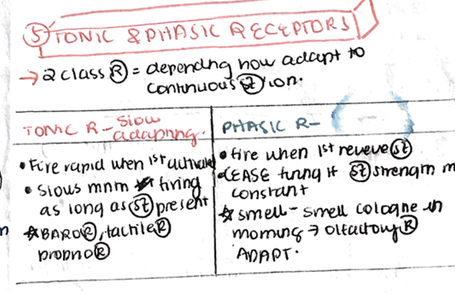 ⑤ TONIC & PHASIC RECEPTORS
→ 2 class Ⓡ = depending how adapt to
continuous (st) ion.
TONIC R- Slow
adapting.
• Fire rapid when 1st activate
• Slows firing
as long as (st) present
☆ BARO Ⓡ, tactile Ⓡ
proprio Ⓡ
PHASIC R-
• fire when 1st (st)
• CEASE firing if (st) strength
constant
☆ smell - smell cologne in
morning → olfactory Ⓡ
ADAPT.